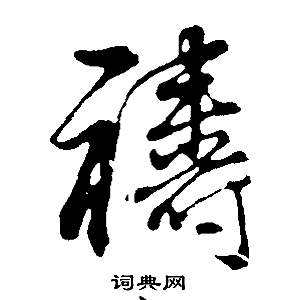 禱
词典网